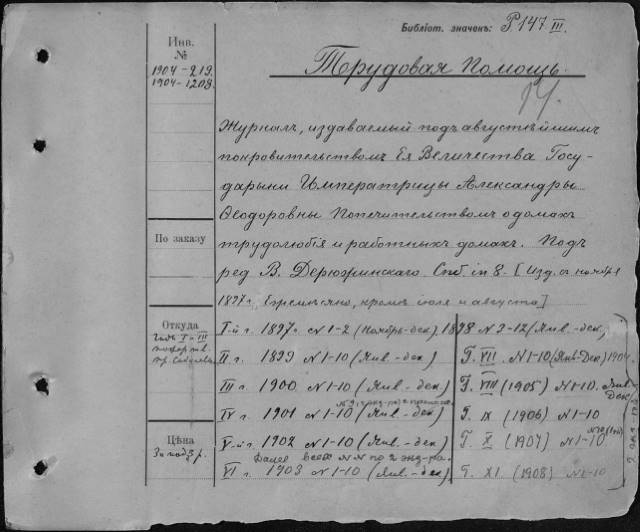 Библіот. значекъ: P.147 III.
Инв.
№
1904-219.
1904-1208.
Трудовая Помощь.
Журналъ, издаваемый подъ августѣйшимъ
покровительствомъ Ея Величества Госу-
дарыни Императрицы Александры
Ѳеодоровны Попечительствомъ о домахъ
трудолюбія и работныхъ домахъ. Подъ
ред В. Дерюжинскаго. Спб. in 8. [Изд. съ ноября
1897 г. Ежемѣсячно, кромѣ іюля и августа]
По заказу
Откуда
I и III
Цѣна
За годъ 3 р.
I-й г. 1897 г. N 1-2 (Ноябрь-дек), 1898 N 3-12 (Янв.-дек,
II г. 1899 N 1-10 (Янв.-дек)
III г. 1900 N 1-10 (Янв.-дек)
IV г. 1901 N 1-10 (Янв.-дек)
V-й г. 1902 N 1-10 (Янв.-дек)
Далее всех N N по 2 экз-ра.
VI г. 1903 N 1-10 (Янв.-дек)
Г. VII. N 1-10 (Янв-Дек) 1904.
Г. VIII (1905) N 1-10. Янв
Дек)
Г. IX (1906) N 1-10
Г. X (1907) N 1-10
Г. XI. (1908) N 1-10